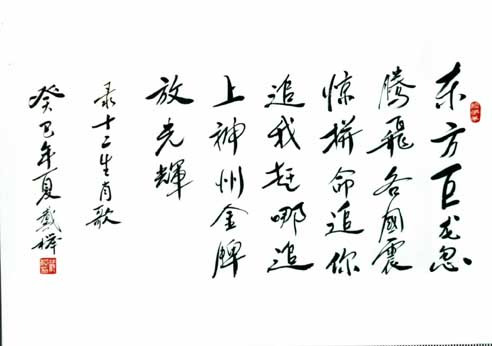 东方巨龙忽
腾飛各國震
惊拼命追你
追我赶哪追
上神州金牌
放光輝
录十二生肖歌
癸巳年夏戴襗